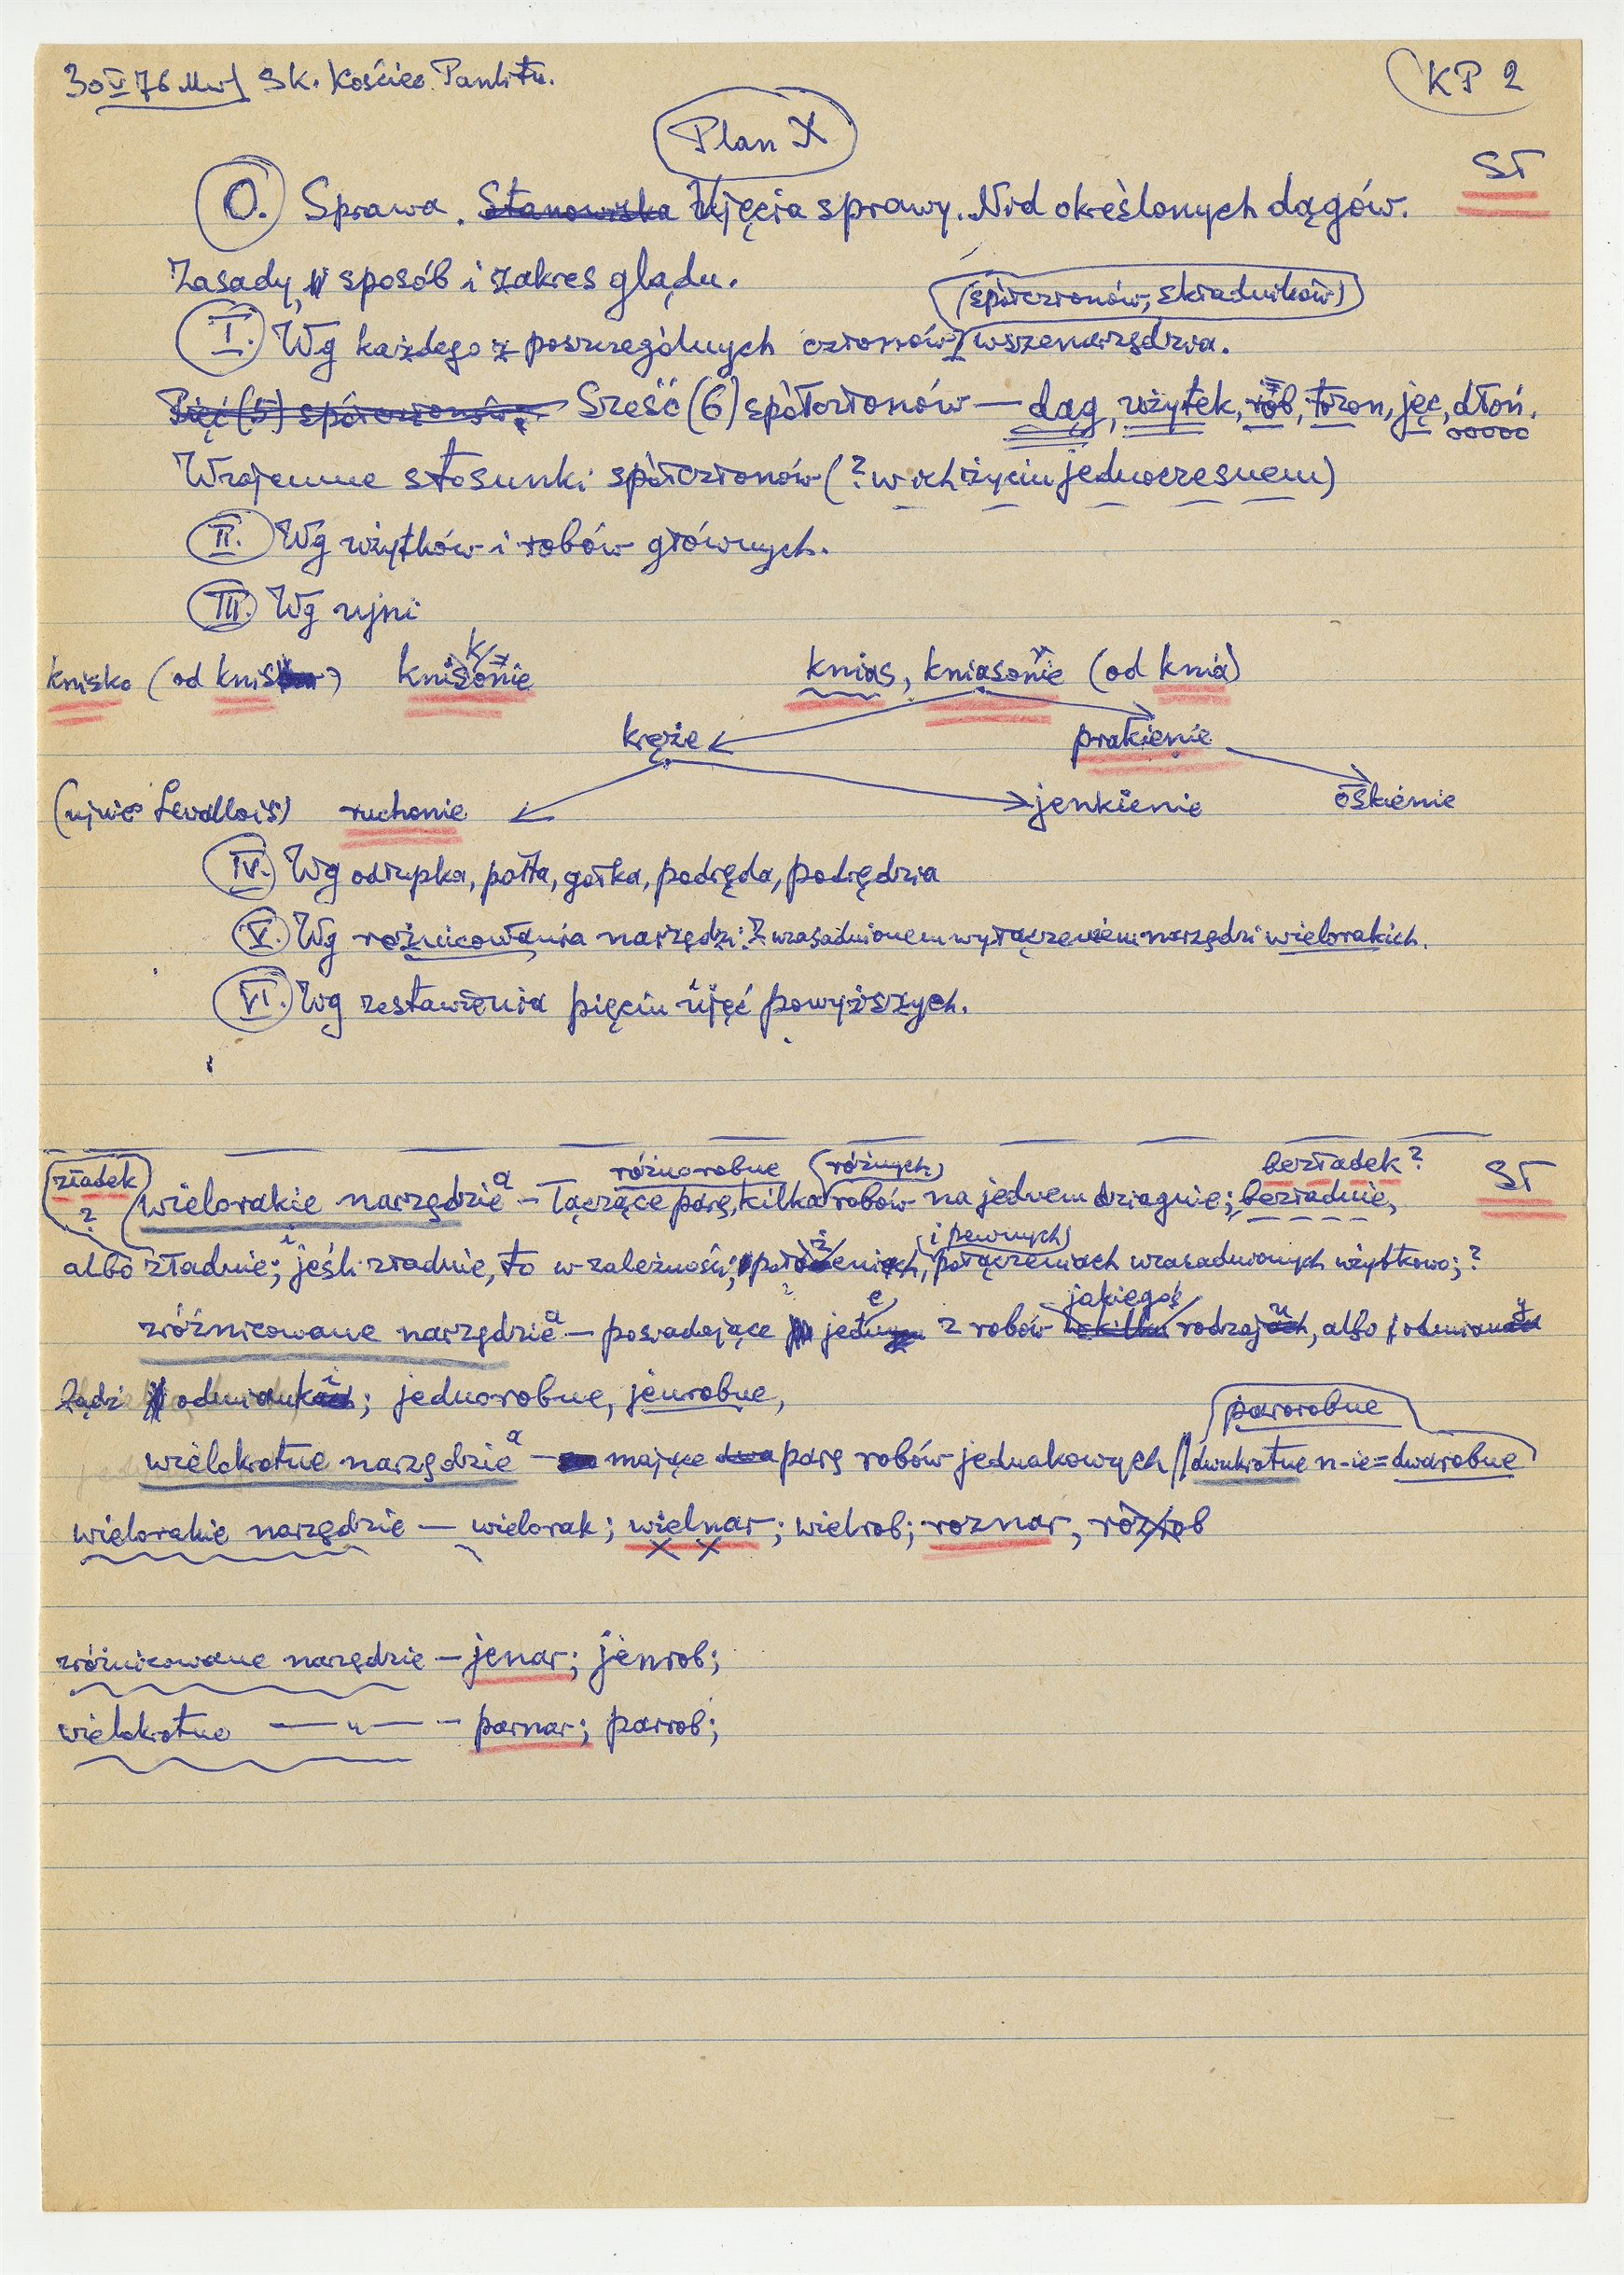 30 V 76 Sk. Kościec Panlitu.
KP 2
Plan X
ST
O. Sprawa. Stanowiska Ujęcia sprawy. Nid określonych dągów.
Zasady, sposób i zakres glądu.
(spółczłonów, składników)
I. Wg każdego z poszczególnych członów wszenarzędzia.
Pięć (5) spółczłonów, Sześć (6) spółczłonów — dąg, użytek, rób, tłzon, jęc, dłoń.
Wzajemne stosunki spółczłonów (? w ich życiu jednoczesnem)
II. Wg użytków i robów głównych.
III. Wg ujni
knisko (od knis) knisonie knias, kniasonie (od knia)
kręże prakienie
(ujnie Levallois) ruchonie jenkienie oskienie
IV. Wg odłupka, połta, gołka, podręda, podrędzia
V. Wg różnicowania narzędzi: z uzasadnionem wyłączeniem narzędzi wielorakich.
VI. Wg zestawienia pięciu ujęć powyższych.
zładek ? różnorobne (różnych) bezładek? ST
wielorakie narzędzie a – łączące parę, kilka robów na jednem dziagnie; bezładnie,
i ż i pewnych
albo zładnie; jeśli zładnie, to w zależności, położeniach, połączeniach uzasadnionych użytkowo; ?
e jakiegoś u y
zróżnicowane narzędzie a – posiadające jedne z robów kilku rodzajach, albo odmianach
bądź odmiankach i; jednorobne, jenrobne,
parorobne
wielokrotne narzędzie a – mające dwa parę robów jednakowych // dwukrotne n-ie = dwarobne
wielorakie narzędzie — wielorak; wielnar; wielrob; roznar, rozrob
zróżnicowane narzędzie – jenar; jenrob;
wielokrotne — „ — – parnar; parrob;